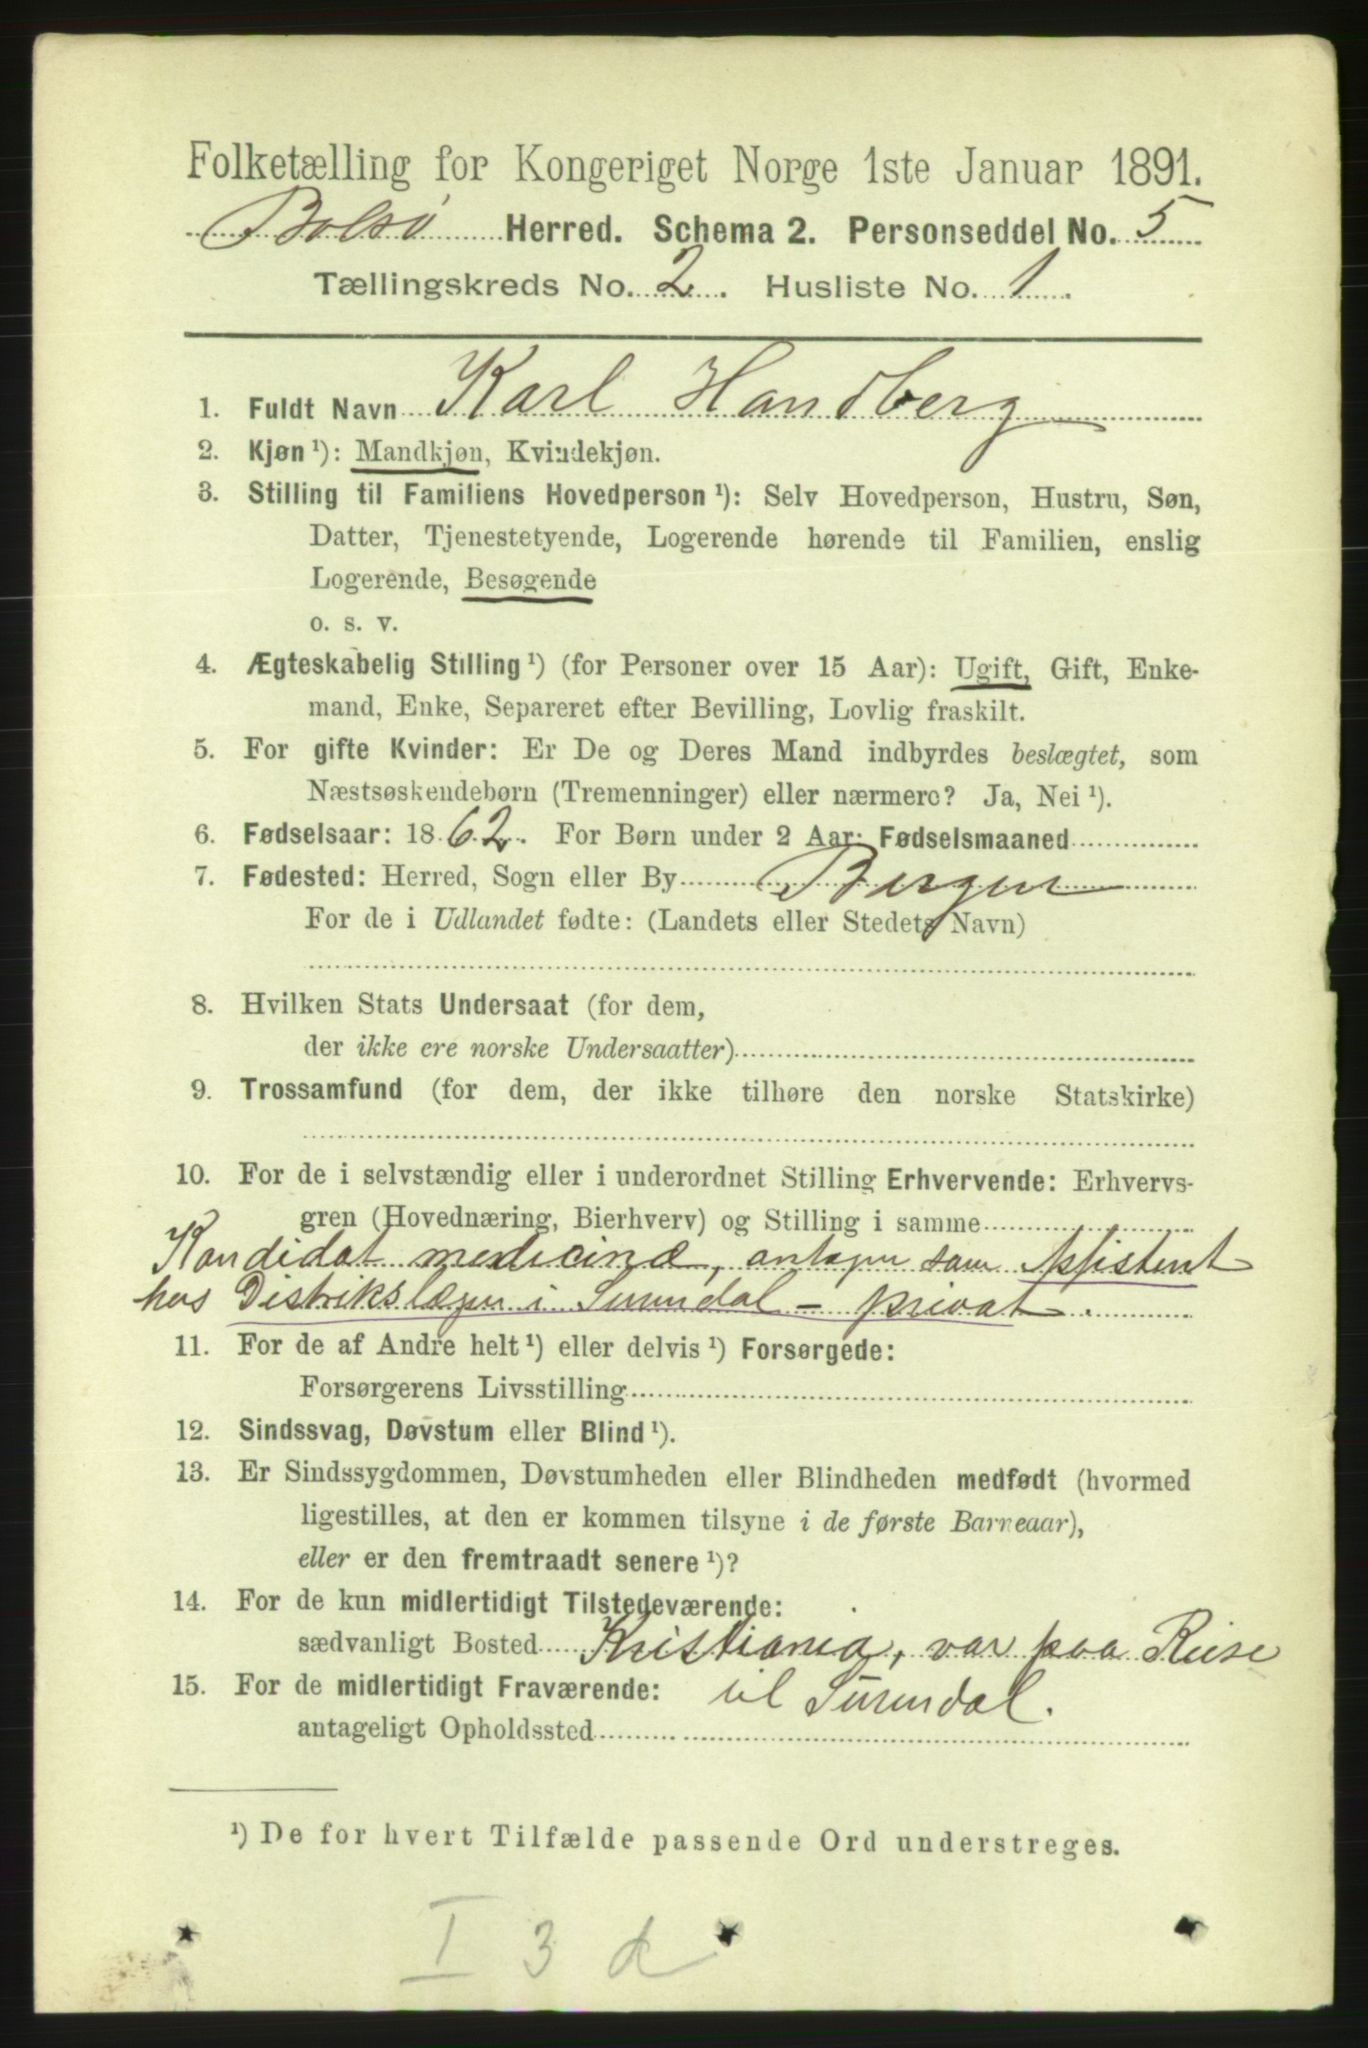 Folketælling for Kongeriget Norge 1ste Januar 1891.
Bolsø Herred. Schema 2. Personseddel No. 5
Tællingskreds No. 2. Husliste No. 1.
1. Fuldt Navn Karl Handberg
2. Kjøn ¹): Mandkjøn, Kvindekjøn.
3. Stilling til Familiens Hovedperson ¹): Selv Hovedperson, Hustru, Søn,
Datter, Tjenestetyende, Logerende hørende til Familien, enslig
Logerende, Besøgende
o. s. v.
4. Ægteskabelig Stilling ¹) (for Personer over 15 Aar): Ugift, Gift, Enke-
mand, Enke, Separeret efter Bevilling, Lovlig fraskilt.
5. For gifte Kvinder: Er De og Deres Mand indbyrdes beslægtet, som
Næstsøskendebørn (Tremenninger) eller nærmere? Ja, Nei ¹).
6. Fødselsaar: 1862. For Børn under 2 Aar: Fødselsmaaned
7. Fødested: Herred, Sogn eller By Bergen
For de i Udlandet fødte: (Landets eller Stedets Navn)
8. Hvilken Stats Undersaat (for dem,
der ikke ere norske Undersaatter)
9. Trossamfund (for dem, der ikke tilhøre den norske Statskirke)
10. For de i selvstændig eller i underordnet Stilling Erhvervende: Erhvervs-
gren (Hovednæring, Bierhverv) og Stilling i samme
Kandidat medicinæ, antagen som Assistent
hos Distrikslægen i Surendal - privat.
11. For de af Andre helt ¹) eller delvis ¹) Forsørgede:
Forsørgerens Livsstilling
12. Sindssvag, Døvstum eller Blind ¹).
13. Er Sindssygdommen, Døvstumheden eller Blindheden medfødt (hvormed
ligestilles, at den er kommen tilsyne i de første Barneaar),
eller er den fremtraadt senere ¹)?
14. For de kun midlertidigt Tilstedeværende:
sædvanligt Bosted Kristiania, var paa Reise
15. For de midlertidigt Fraværende: til Surendal.
antageligt Opholdssted
¹) De for hvert Tilfælde passende Ord understreges.
I 3 d